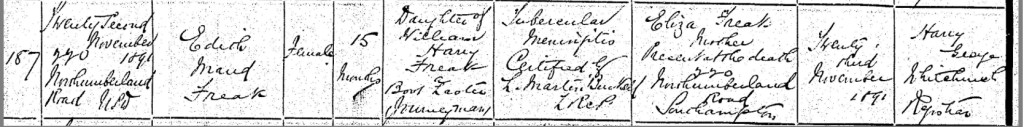 187
Twenty Second
November
1891
220
Northumberland
Road
Edith
Maud
Freak
Female
15
Months
Daughter of
William
Harry
Freak
Boot
(Journeyman)
Tubercular
Meningitis
Certified by
L. Martin
LRCP
Eliza Freak
Mother
Present at the death
220
Northumberland
Road
Southampton
Twenty
third
November
1891
Harry
George
Whitchurch
Registrar